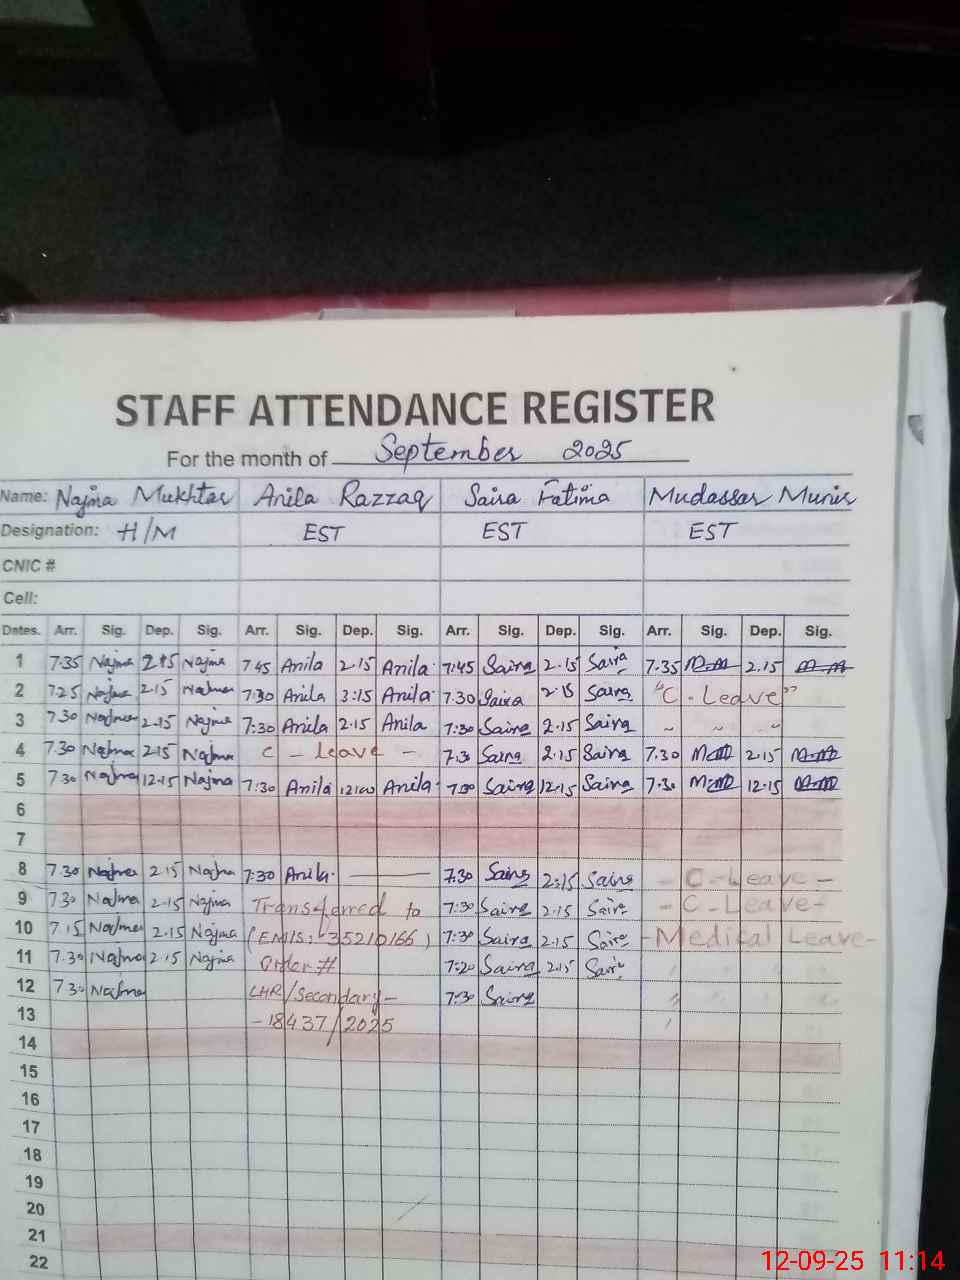 STAFF ATTENDANCE REGISTER
For the month of September 2025
Name: Najma Mukhtar Anila Razzaq Saira Fatima Mudassar Munir
Designation: H/M EST EST EST
CNIC #
Cell:
Dates. Arr. Sig. Dep. Sig. Arr. Sig. Dep. Sig. Arr. Sig. Dep. Sig. Arr. Sig. Dep. Sig.
1 7:35 Najma 2:15 Najma 7:45 Anila 2:15 Anila 7:45 Saira 2.15 Saira 7.35 2.15
2 7.25 Najma 2.15 Najma 7:30 Anila 3:15 Anila 7.30 Saira 2.15 Saira "C - Leave"
3 7.30 Najma 2.15 Najma 7:30 Anila 2.15 Anila 7:30 Saira 2.15 Saira " " "
4 7.30 Najma 2.15 Najma C - leave - 7.30 Saira 2.15 Saira 7.30 2.15
5 7.30 Najma 12.15 Najma 7:30 Anila Anila 7.30 Saira 12.15 Saira 7.30 12.15
6
7
8 7.30 Najma 2.15 Najma 7:30 Anila 7.30 Saira 2:15 Saira - C - Leave -
9 7.30 Najma 2.15 Najma Transferred to 7:30 Saira 2.15 Saira - C - Leave -
10 7.15 Najma 2.15 Najma (EMIS: 35210166) 7:30 Saira 2.15 Saira - Medical Leave -
11 7.30 Najma 2.15 Najma Order # 7:20 Saira 2.15 Saira
12 7.30 Najma LHR/Secondary - 7:30 Saira
13 - 18437/2025
14
15
16
17
18
19
20
21
22
12-09-25 11:14